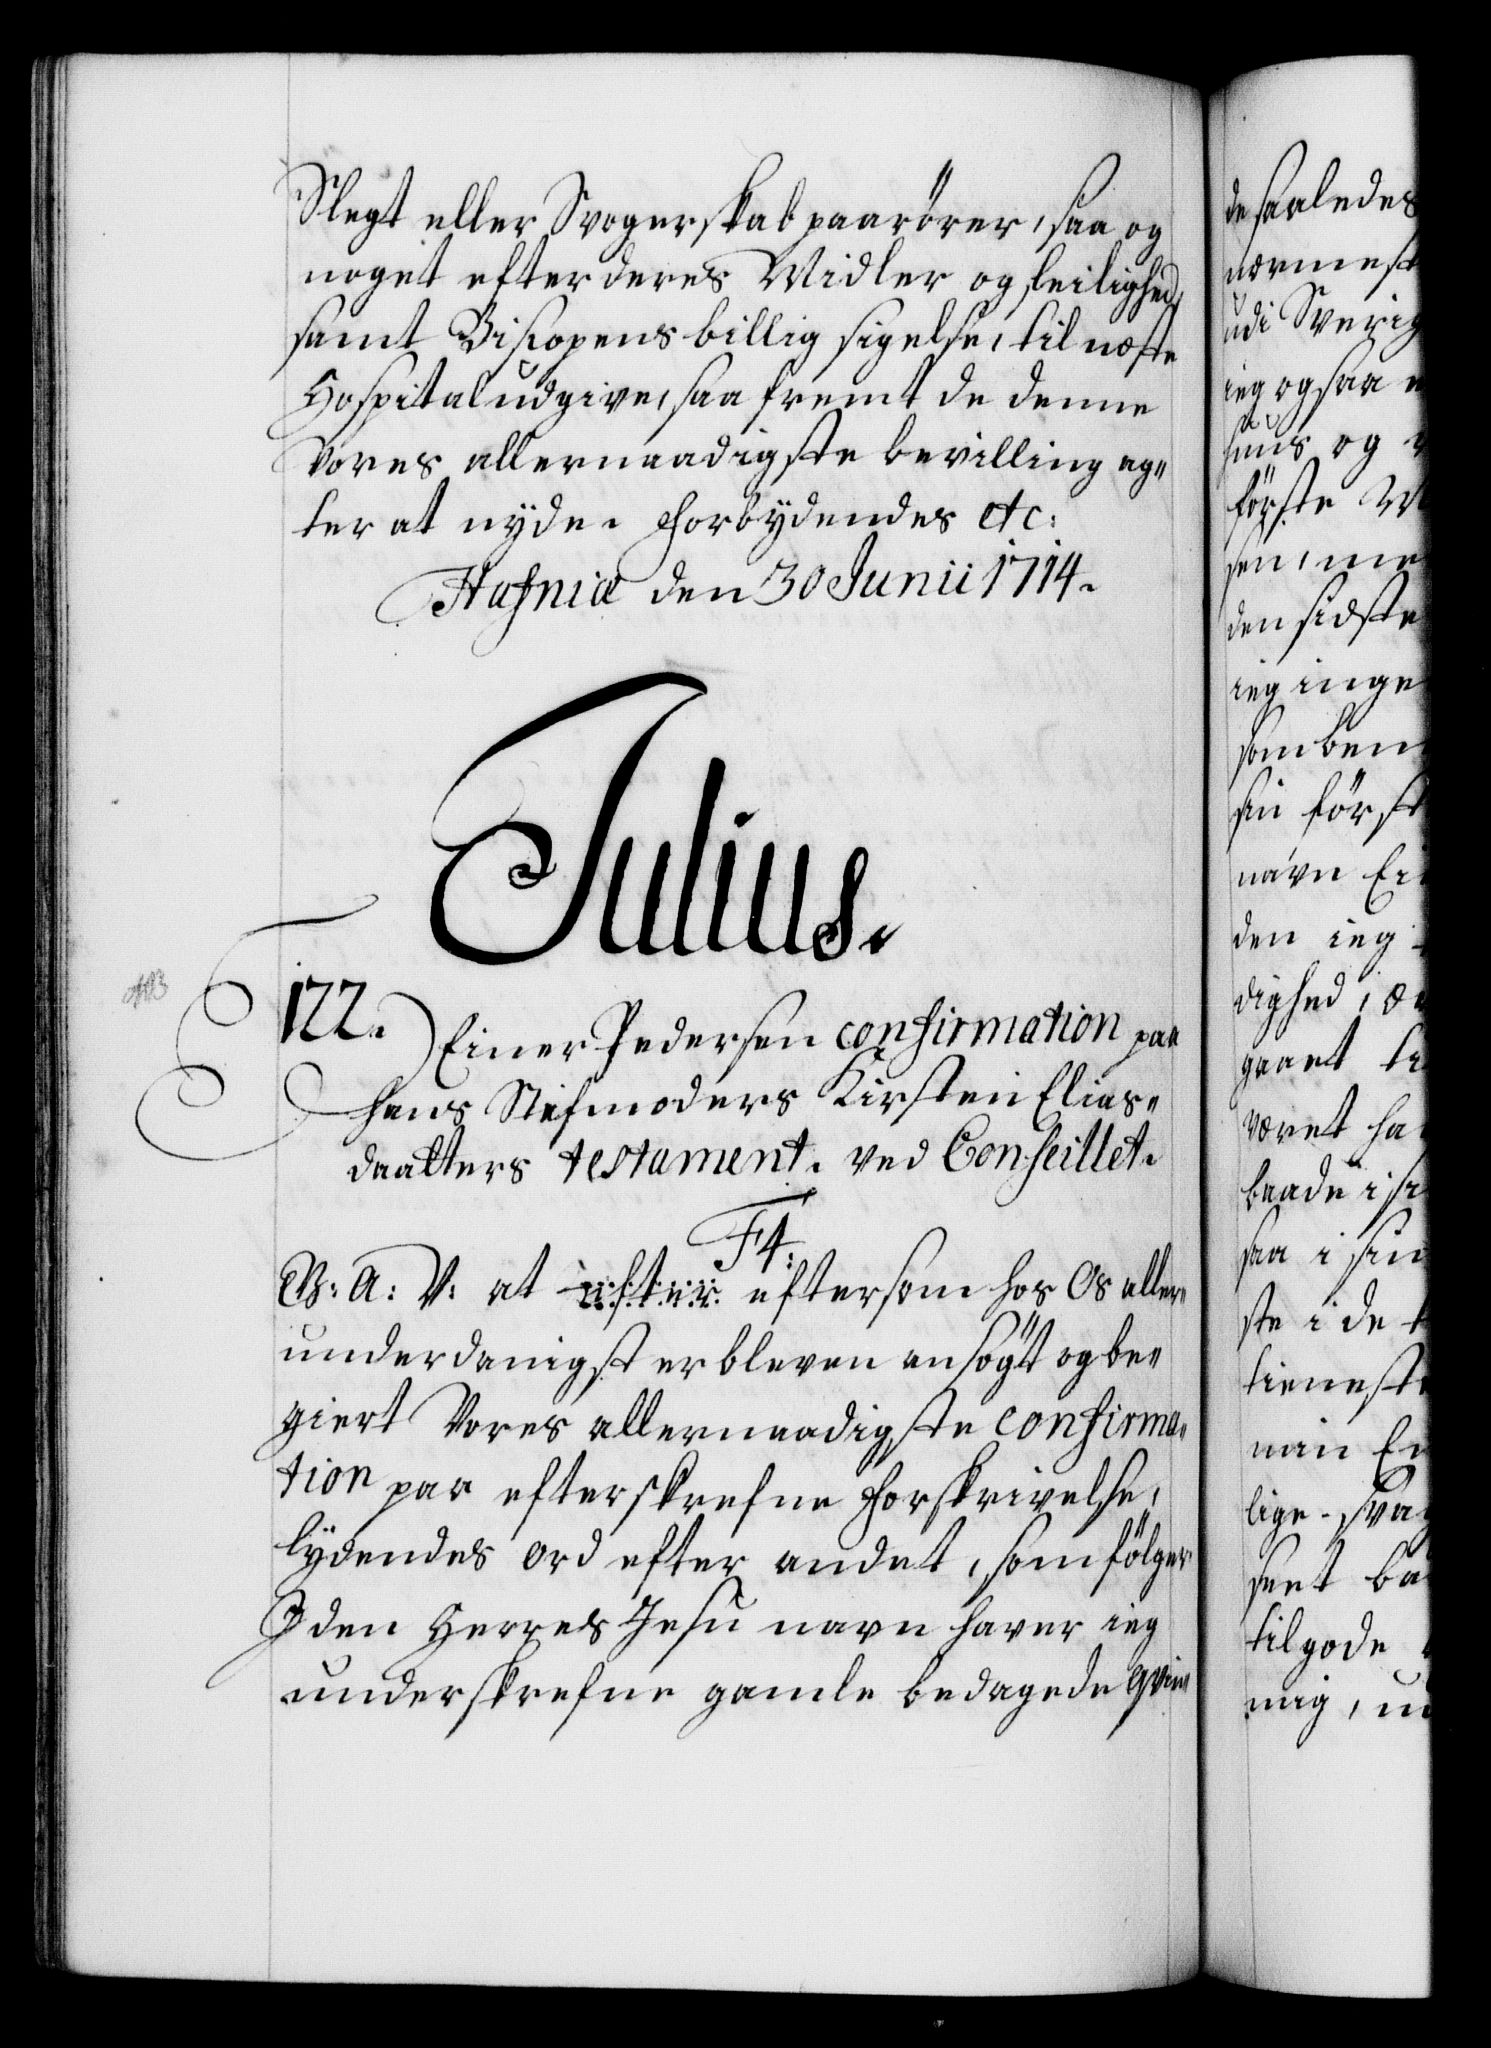 Slegt eller Svogerskab paarörer, saa og
noget efter deres Midler og leilighed,
samt Biscopens billig sigelse, til neste
Hospital udgive, saa fremt de denne
Vores allernaadigste bevilling ag„
ter at nyde. Forbydendes etc:
Hafniæ den 30 Junii 1714.
Julius.
NB
122. Einer Pedersen confirmation paa
hans Stifmoders Kirsten Elias„
daatters testament. ved Conseillet.
F4.
G: A: V: at efter eftersom hos Os aller„
underdanigst er bleven ansögt og be„
giert Vores allernaadigste confirma„
tion paa efterskrefne Forskrivelse,
lydendes ord efter andet, som fölger
I den Herres Jesu navn haver ieg
underskrefne gamle bedagede qvin„
de saaledes
nærmest
udi Sverig
ieg ogsaa
huus og
förste
sen, me
den sidste
ieg inge
som ben
sin först
navn Ei
den ieg
dighed,
gaaet
været ha
baade i
saa i sin
ste i de
tieneste
min
lige
seet
til gode
mig,